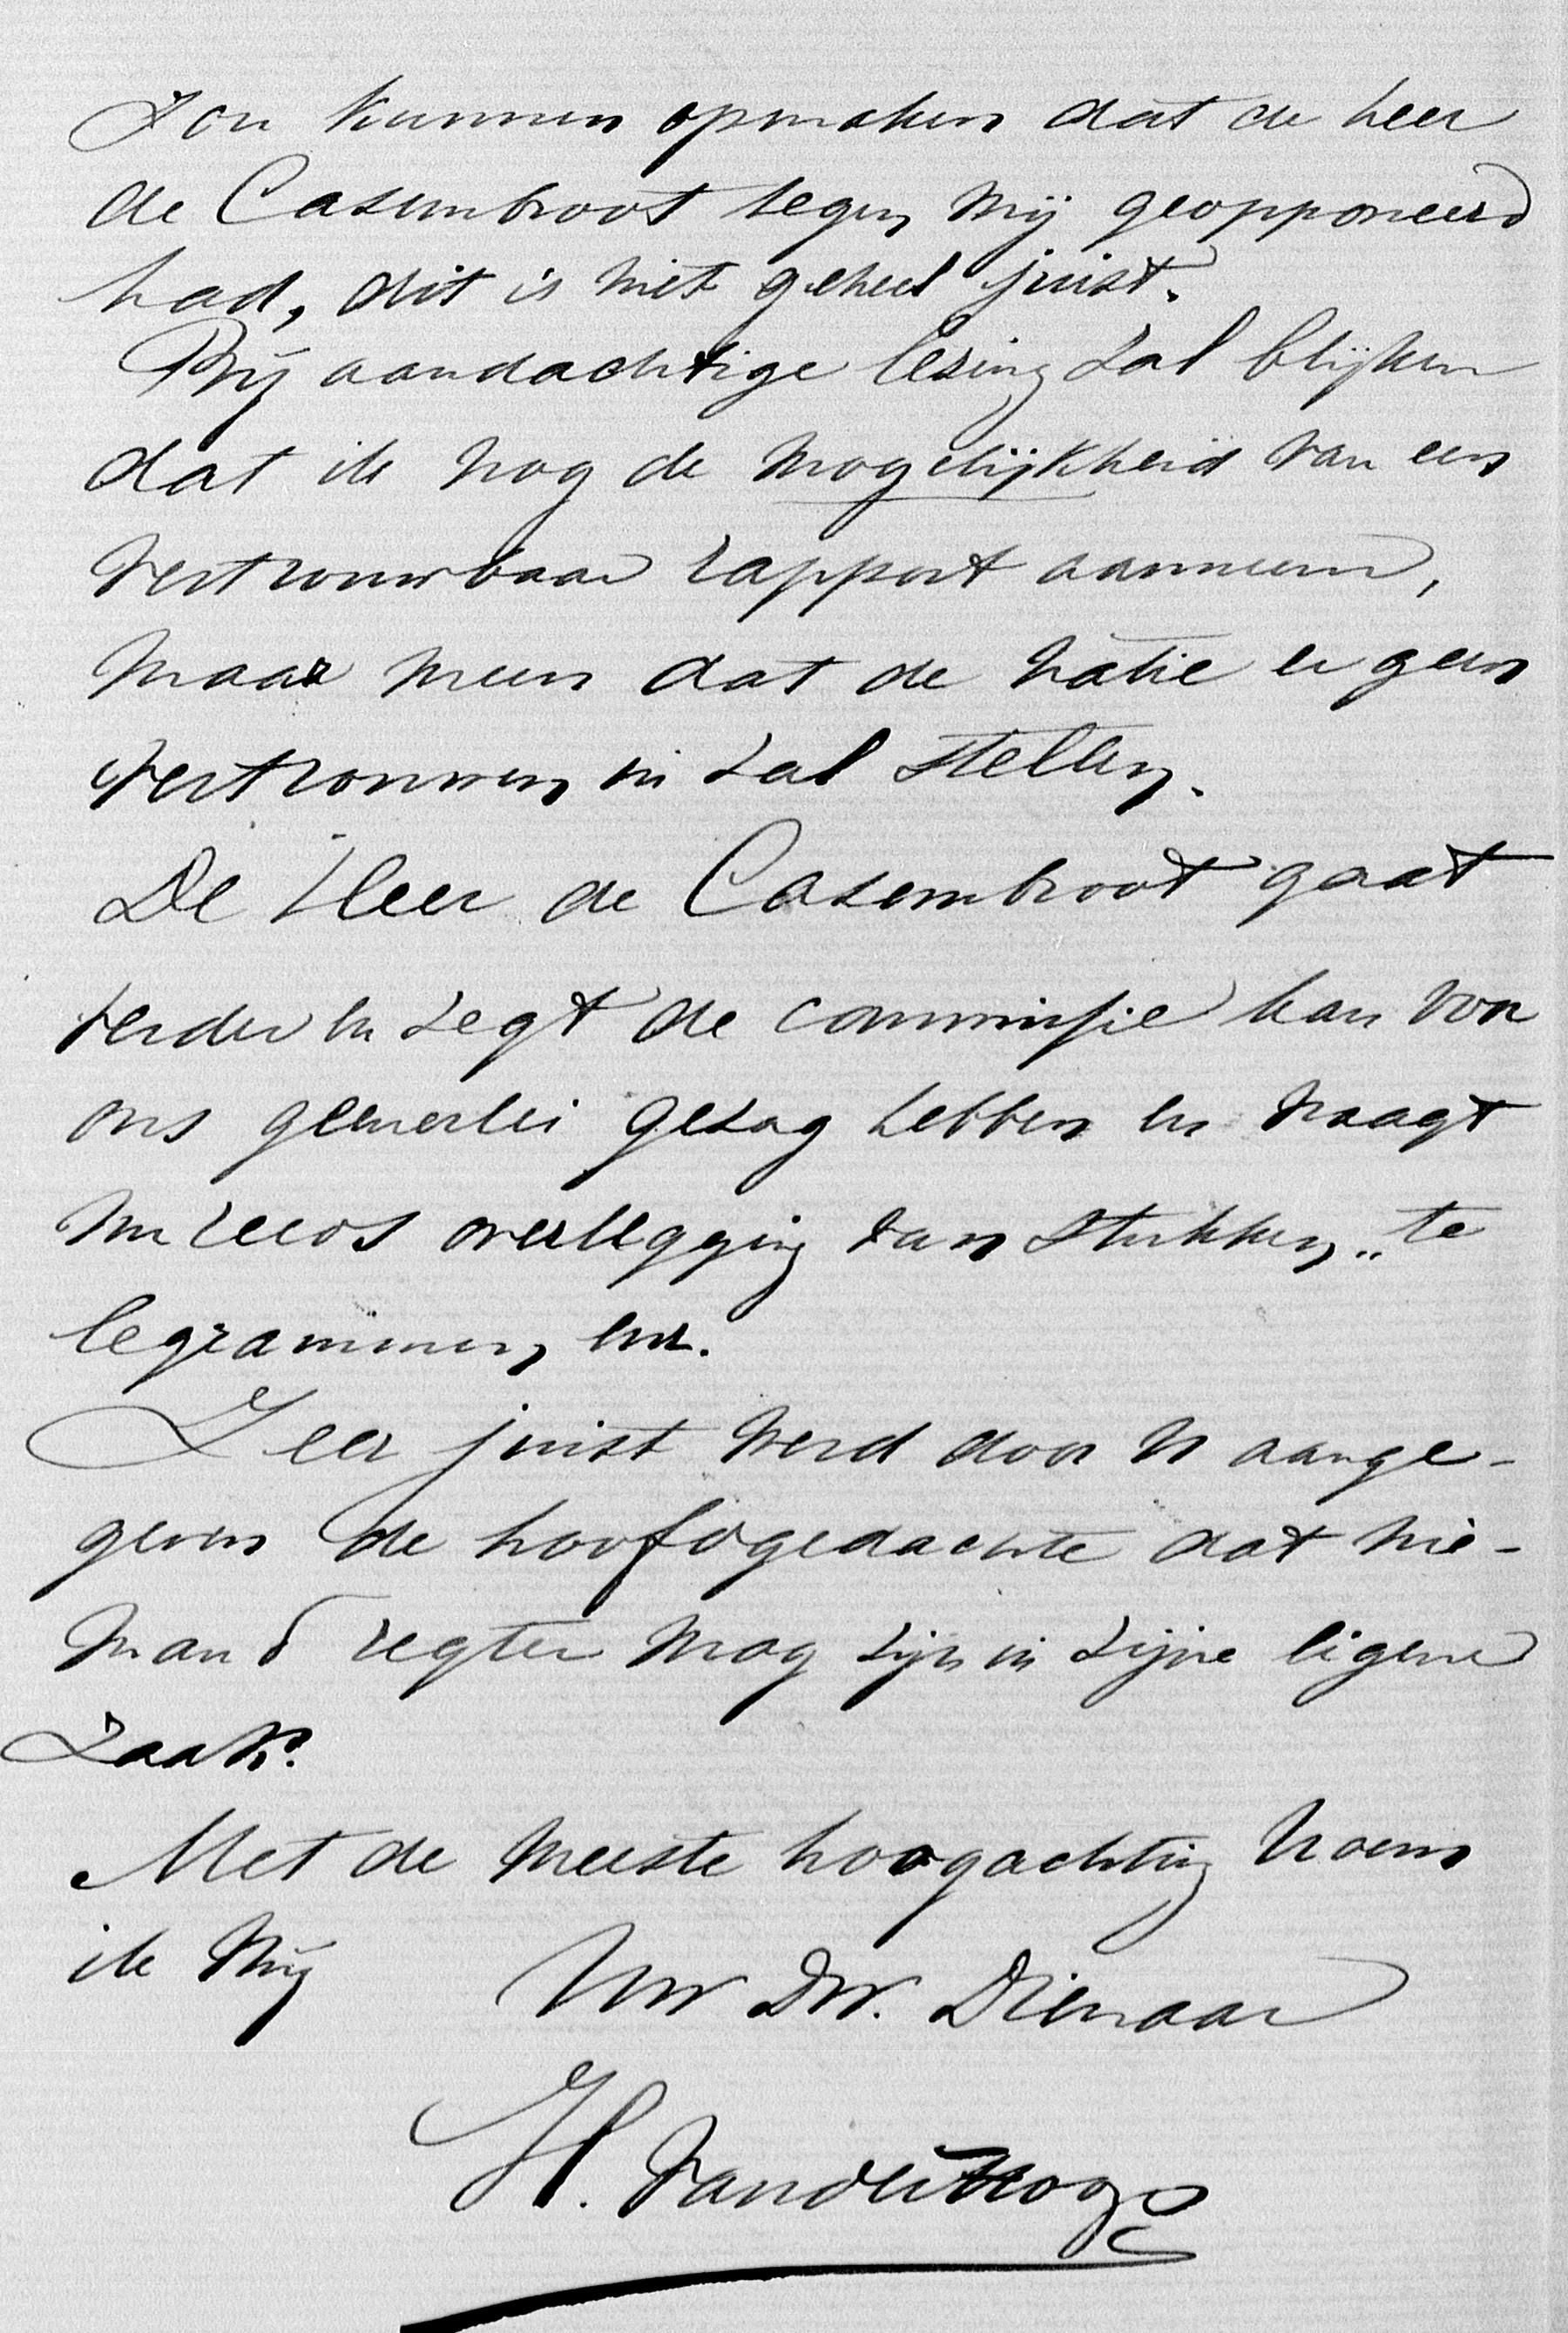 Zou kunnen opmaken dat de heer
de Casembroot tegen mij geopponeerd
had, dit is niet geheel juist.
Bij aandachtige lezing zal blijken
dat ik nog de mogelijkheid van een
vertrouwbaar rapport aanneem,
maar meen dat de natie er geen
vertrouwen in zal stellen.
De Heer de Casembroot gaat
verder en zegt de commissie kan voor
ons generlei gezag hebben en vraagt
nu reeds overlegging van stukken, te
legrammen, enz.
Zeer juist werd door U aange-
geven de hoofdgedachte dat nie-
mand regter mag zijn in zijne eigene
zaak.
Met de meeste hoogachting noem
ik mij Uw Dw. Dienaar
H. van der